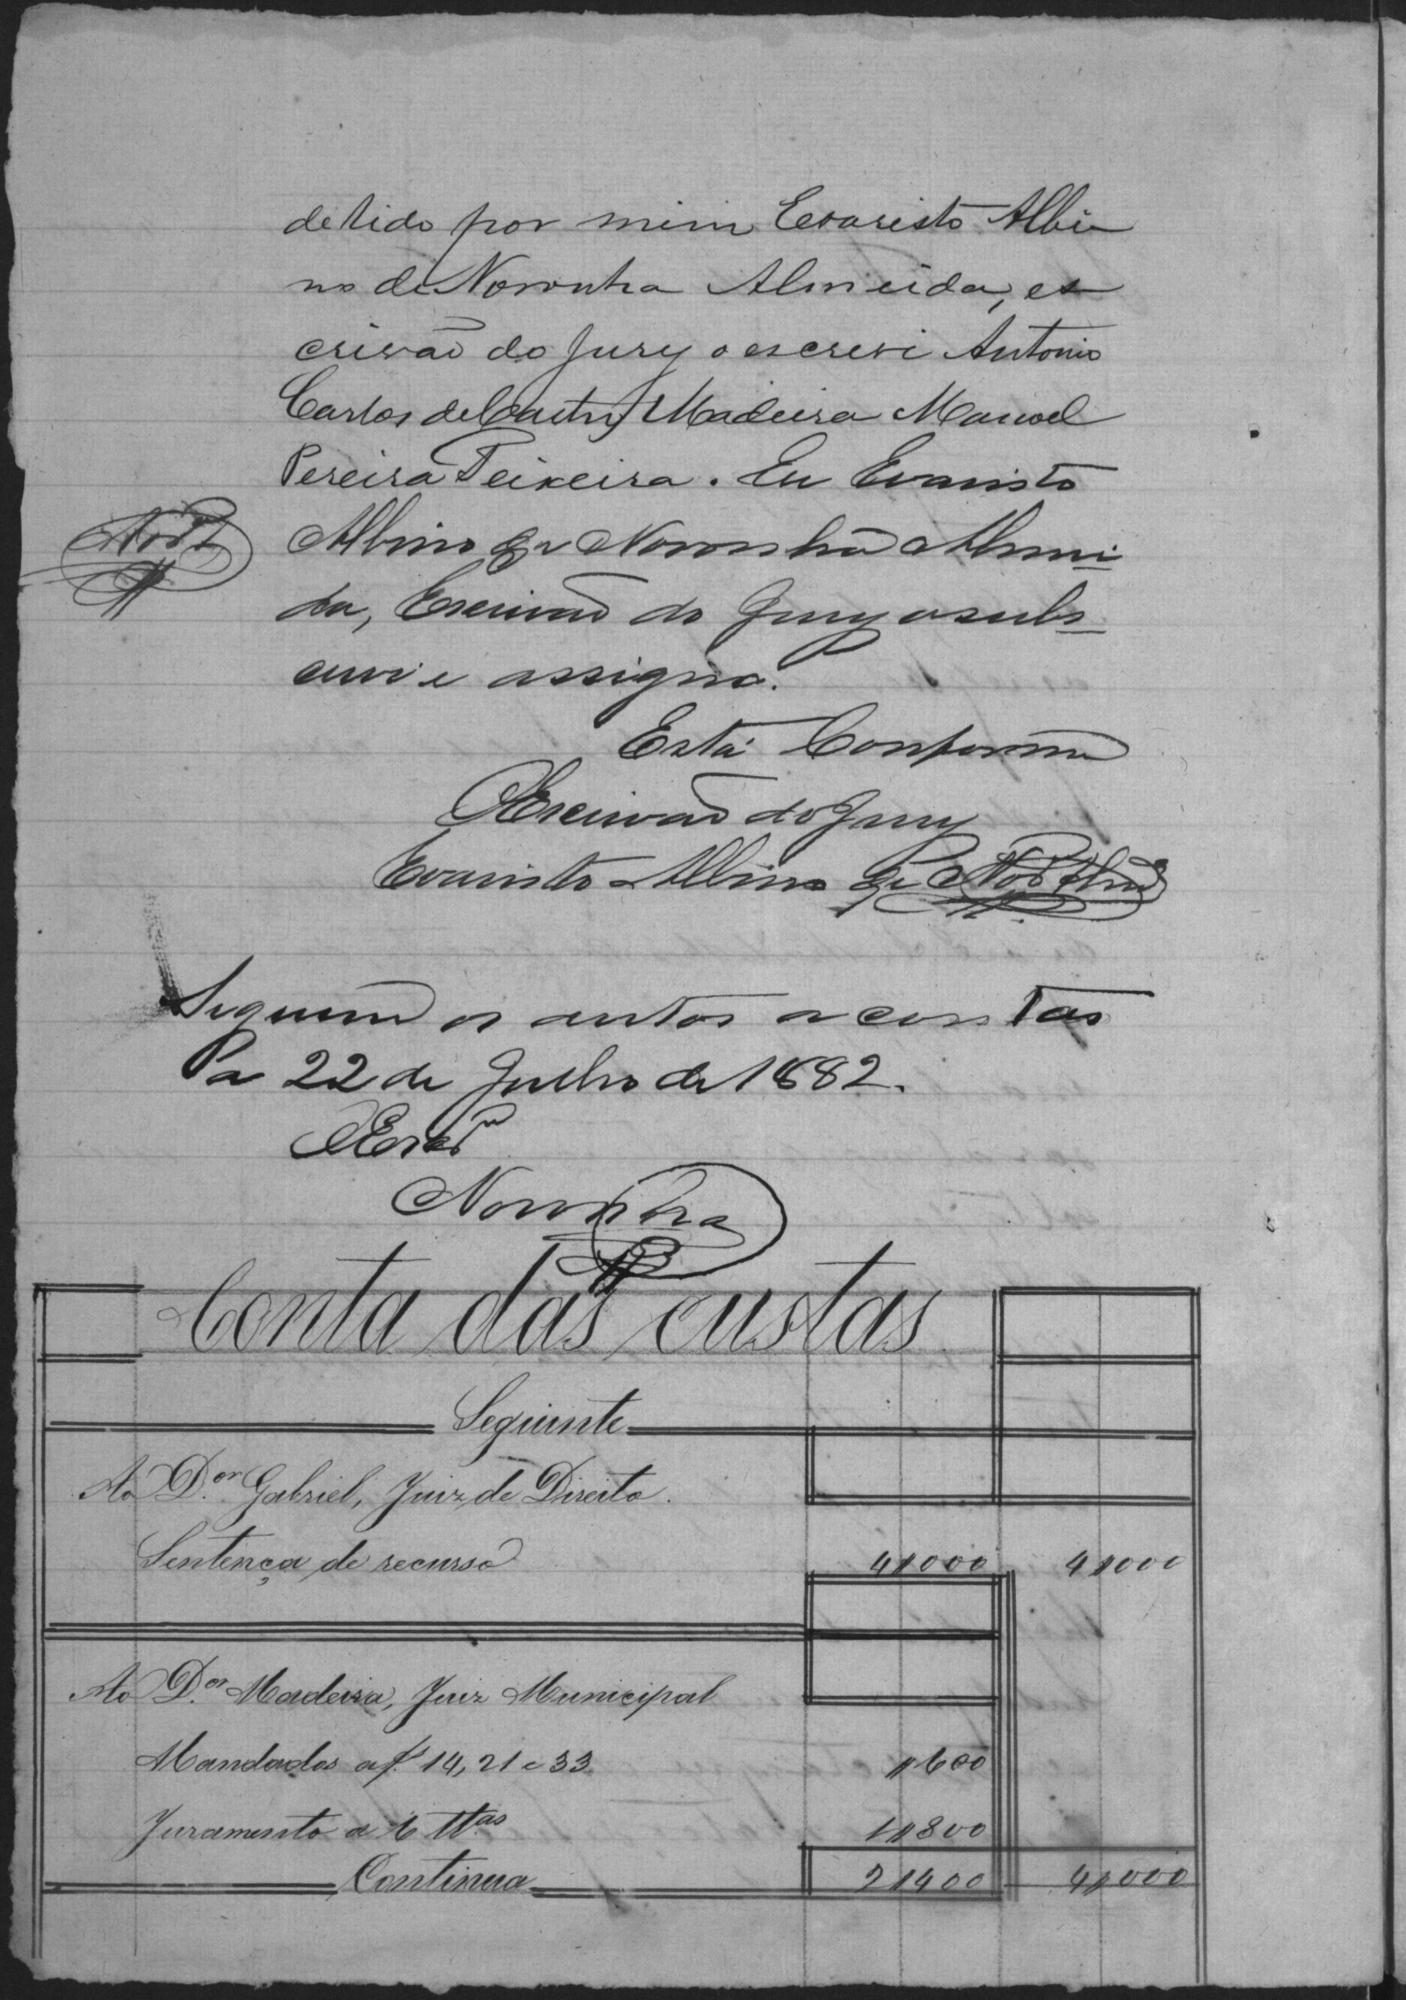 detido por mim Evaristo Albi
no de Noronha Almeida, es
crivão do Jury o escrevi Antonio
Carlos de Castro Madeira Manoel
Pereira Teixeira. Eu Evaristo
Albino de Noronha Almei
da, Escrivão do Jury o subs
crevi e assigno.
Está Conforme
O Escrivão do Jury
Evaristo Albino de Nor.ª Alm.da
Seguem os autos a contas
Pa 22 de Julho de 1882.
O Escr.m
Noronha
Conta das custas
Seguinte
Ao D.or Gabriel, Juiz de Direito.
Sentença de recurso 4//000 4//000
Ao D.or Madeira, Juiz Municipal
Mandados a f. 14, 21 e 33 //600
Juramento a 6 ttas 1//800
Continua 2//400 4//000